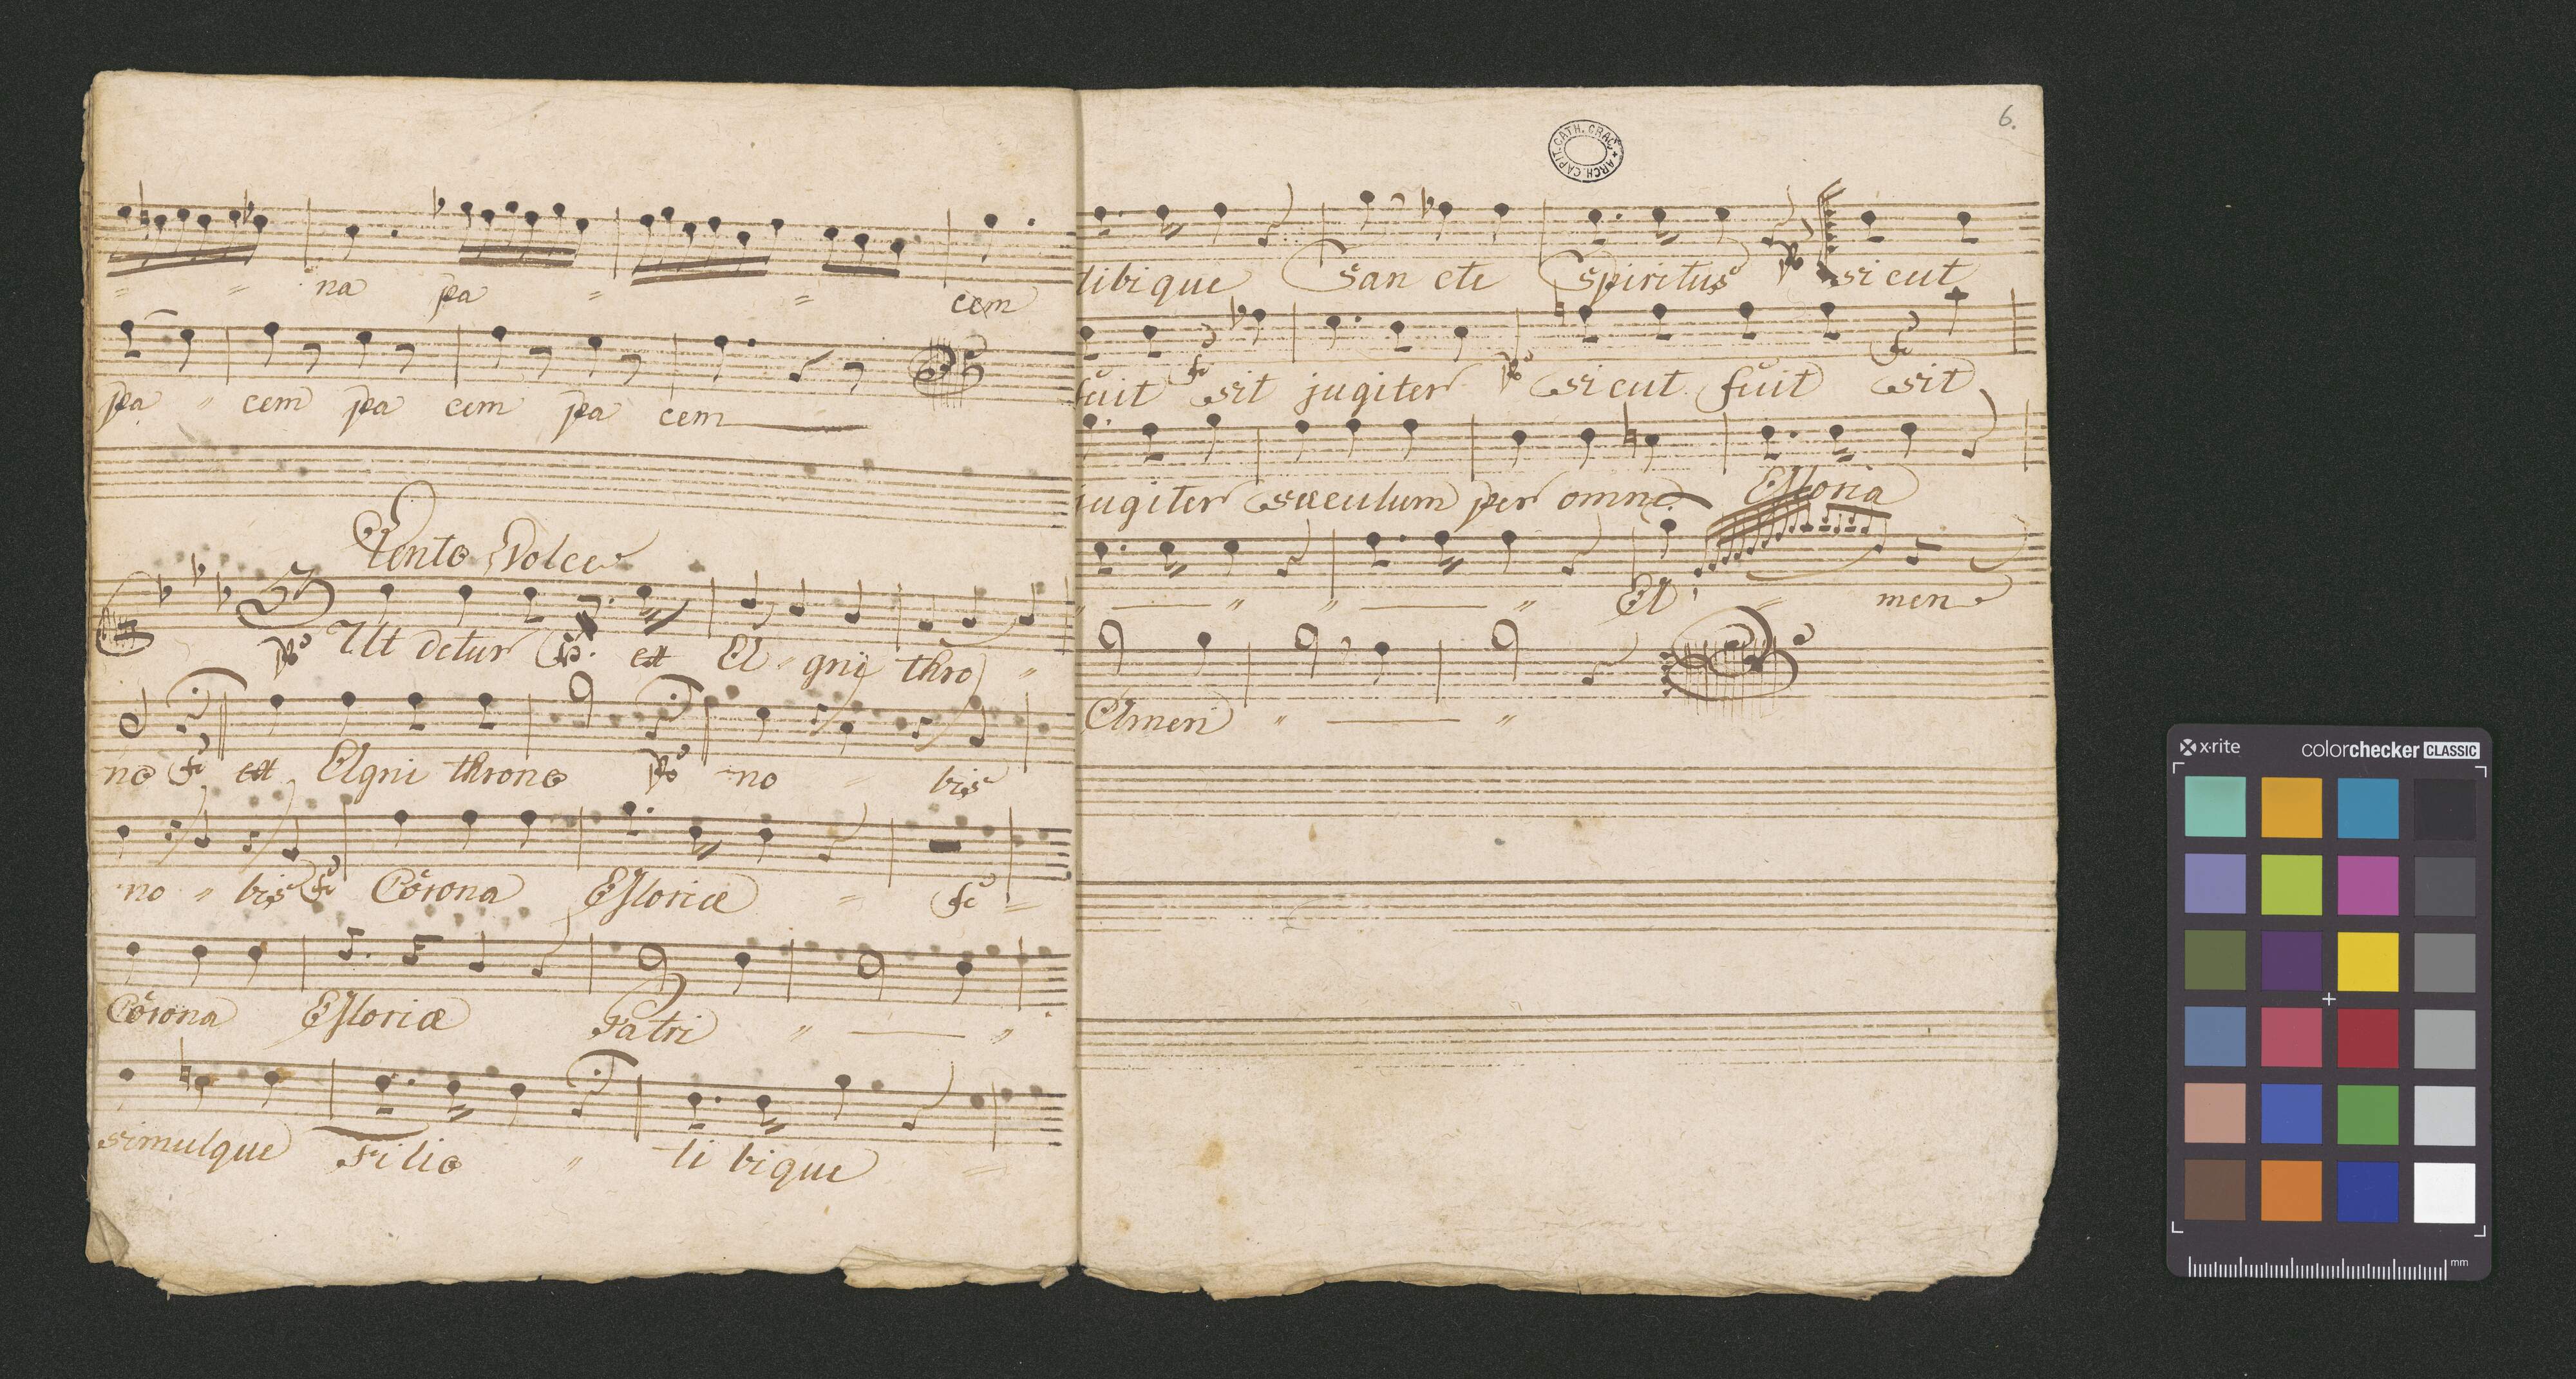 na pa cem
pa cem pa cem pa cem
Lento Dolce
po Ut detur fo. et Agni thro
no fo et Agni throno po no bis
no bis fo Corona Gloriæ fo
Corona Gloriæ Patri
simulque Filio tibique
6.
ARCH. CAPIT. CATH. CRAC.
tibique Sancte Spiritus po sicut
fuit fo sit jugiter po sicut fuit fo sit
jugiter sæculum per omne Gloria
A men
Amen
x-rite colorchecker CLASSIC
mm